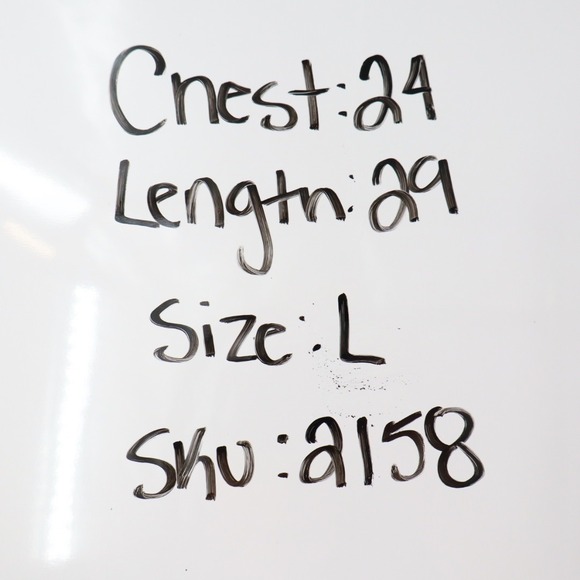 Chest: 24
Length: 29
Size: L
Sku: 2158